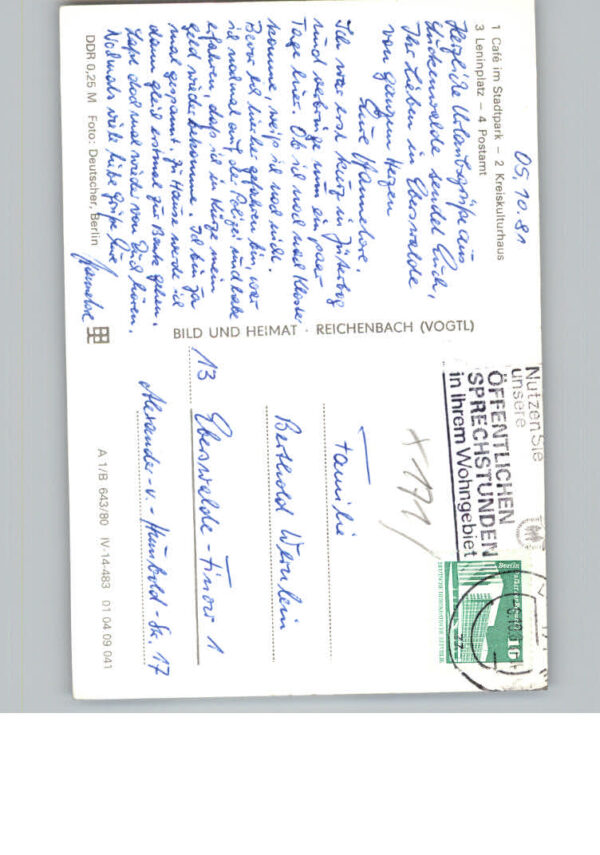 1 Café im Stadtpark – 2 Kreiskulturhaus
3 Leninplatz – 4 Postamt
05.10.81
Herzliche Urlaubsgrüße aus
Luckenwalde sendet Euch,
Ihr Lieben in Eberswalde
von ganzem Herzen
Eure Hannelore.
Ich war erst kurz in Jüterbog
und verbringe nun ein paar
Tage hier. Ob ich noch nach Kloster
komme, weiß ich noch nicht.
Bevor ich hierher gefahren bin, war
ich nochmal auf der Polizei und habe
erfahren, daß ich in Kürze mein
Geld wieder bekomme. Ich bin ja
mal gespannt. Zu Hause werde ich
dann gleich erstmal zur Bank gehen.
Laßt doch mal wieder von Euch hören.
Nochmals viele liebe Grüße Eure
Hannelore
DDR 0,25 M Foto: Deutscher, Berlin
BILD UND HEIMAT · REICHENBACH (VOGTL)
Nutzen Sie
unsere
ÖFFENTLICHEN
SPRECHSTUNDEN
in Ihrem Wohngebiet
Berlin
10
DEUTSCHE DEMOKRATISCHE REPUBLIK
X 171/
Familie
Berthold Wernlein
13 Eberswalde-Finow 1
Alexander-v-Humbold-Str. 17
A 1/B 643/80 IV-14-483 01 04 09 041